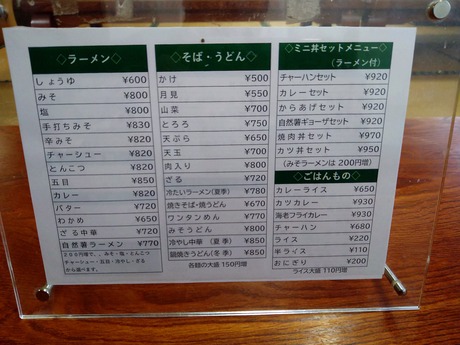 ◇ラーメン◇
しょうゆ ¥600
みそ ¥800
塩 ¥800
手打ちみそ ¥830
辛みそ ¥820
チャーシュー ¥820
とんこつ ¥820
五目 ¥850
カレー ¥820
バター ¥720
わかめ ¥650
ざる中華 ¥720
自然薯ラーメン ¥770
200円増で、みそ・塩・とんこつ
チャーシュー・五目・冷やし・ざる
から選べます。
◇そば・うどん◇
かけ ¥500
月見 ¥550
山菜 ¥700
とろろ ¥750
天ぷら ¥650
天玉 ¥700
肉入り ¥800
ざる ¥720
冷たいラーメン(夏季) ¥780
焼きそば・焼うどん ¥670
ワンタンめん ¥770
みそうどん ¥800
冷やし中華 (夏 季) ¥850
鍋焼きうどん(冬 季) ¥850
各麺の大盛 150円増
◇ミニ丼セットメニュー◇
(ラーメン付)
チャーハンセット ¥920
カレーセット ¥920
からあげセット ¥920
自然薯ギョーザセット ¥920
焼肉丼セット ¥970
カツ丼セット ¥950
(みそラーメンは 200円増)
◇ごはんもの◇
カレーライス ¥650
カツカレー ¥930
海老フライカレー ¥930
チャーハン ¥680
ライス ¥220
半ライス ¥110
おにぎり ¥200
ライス大盛 110円増